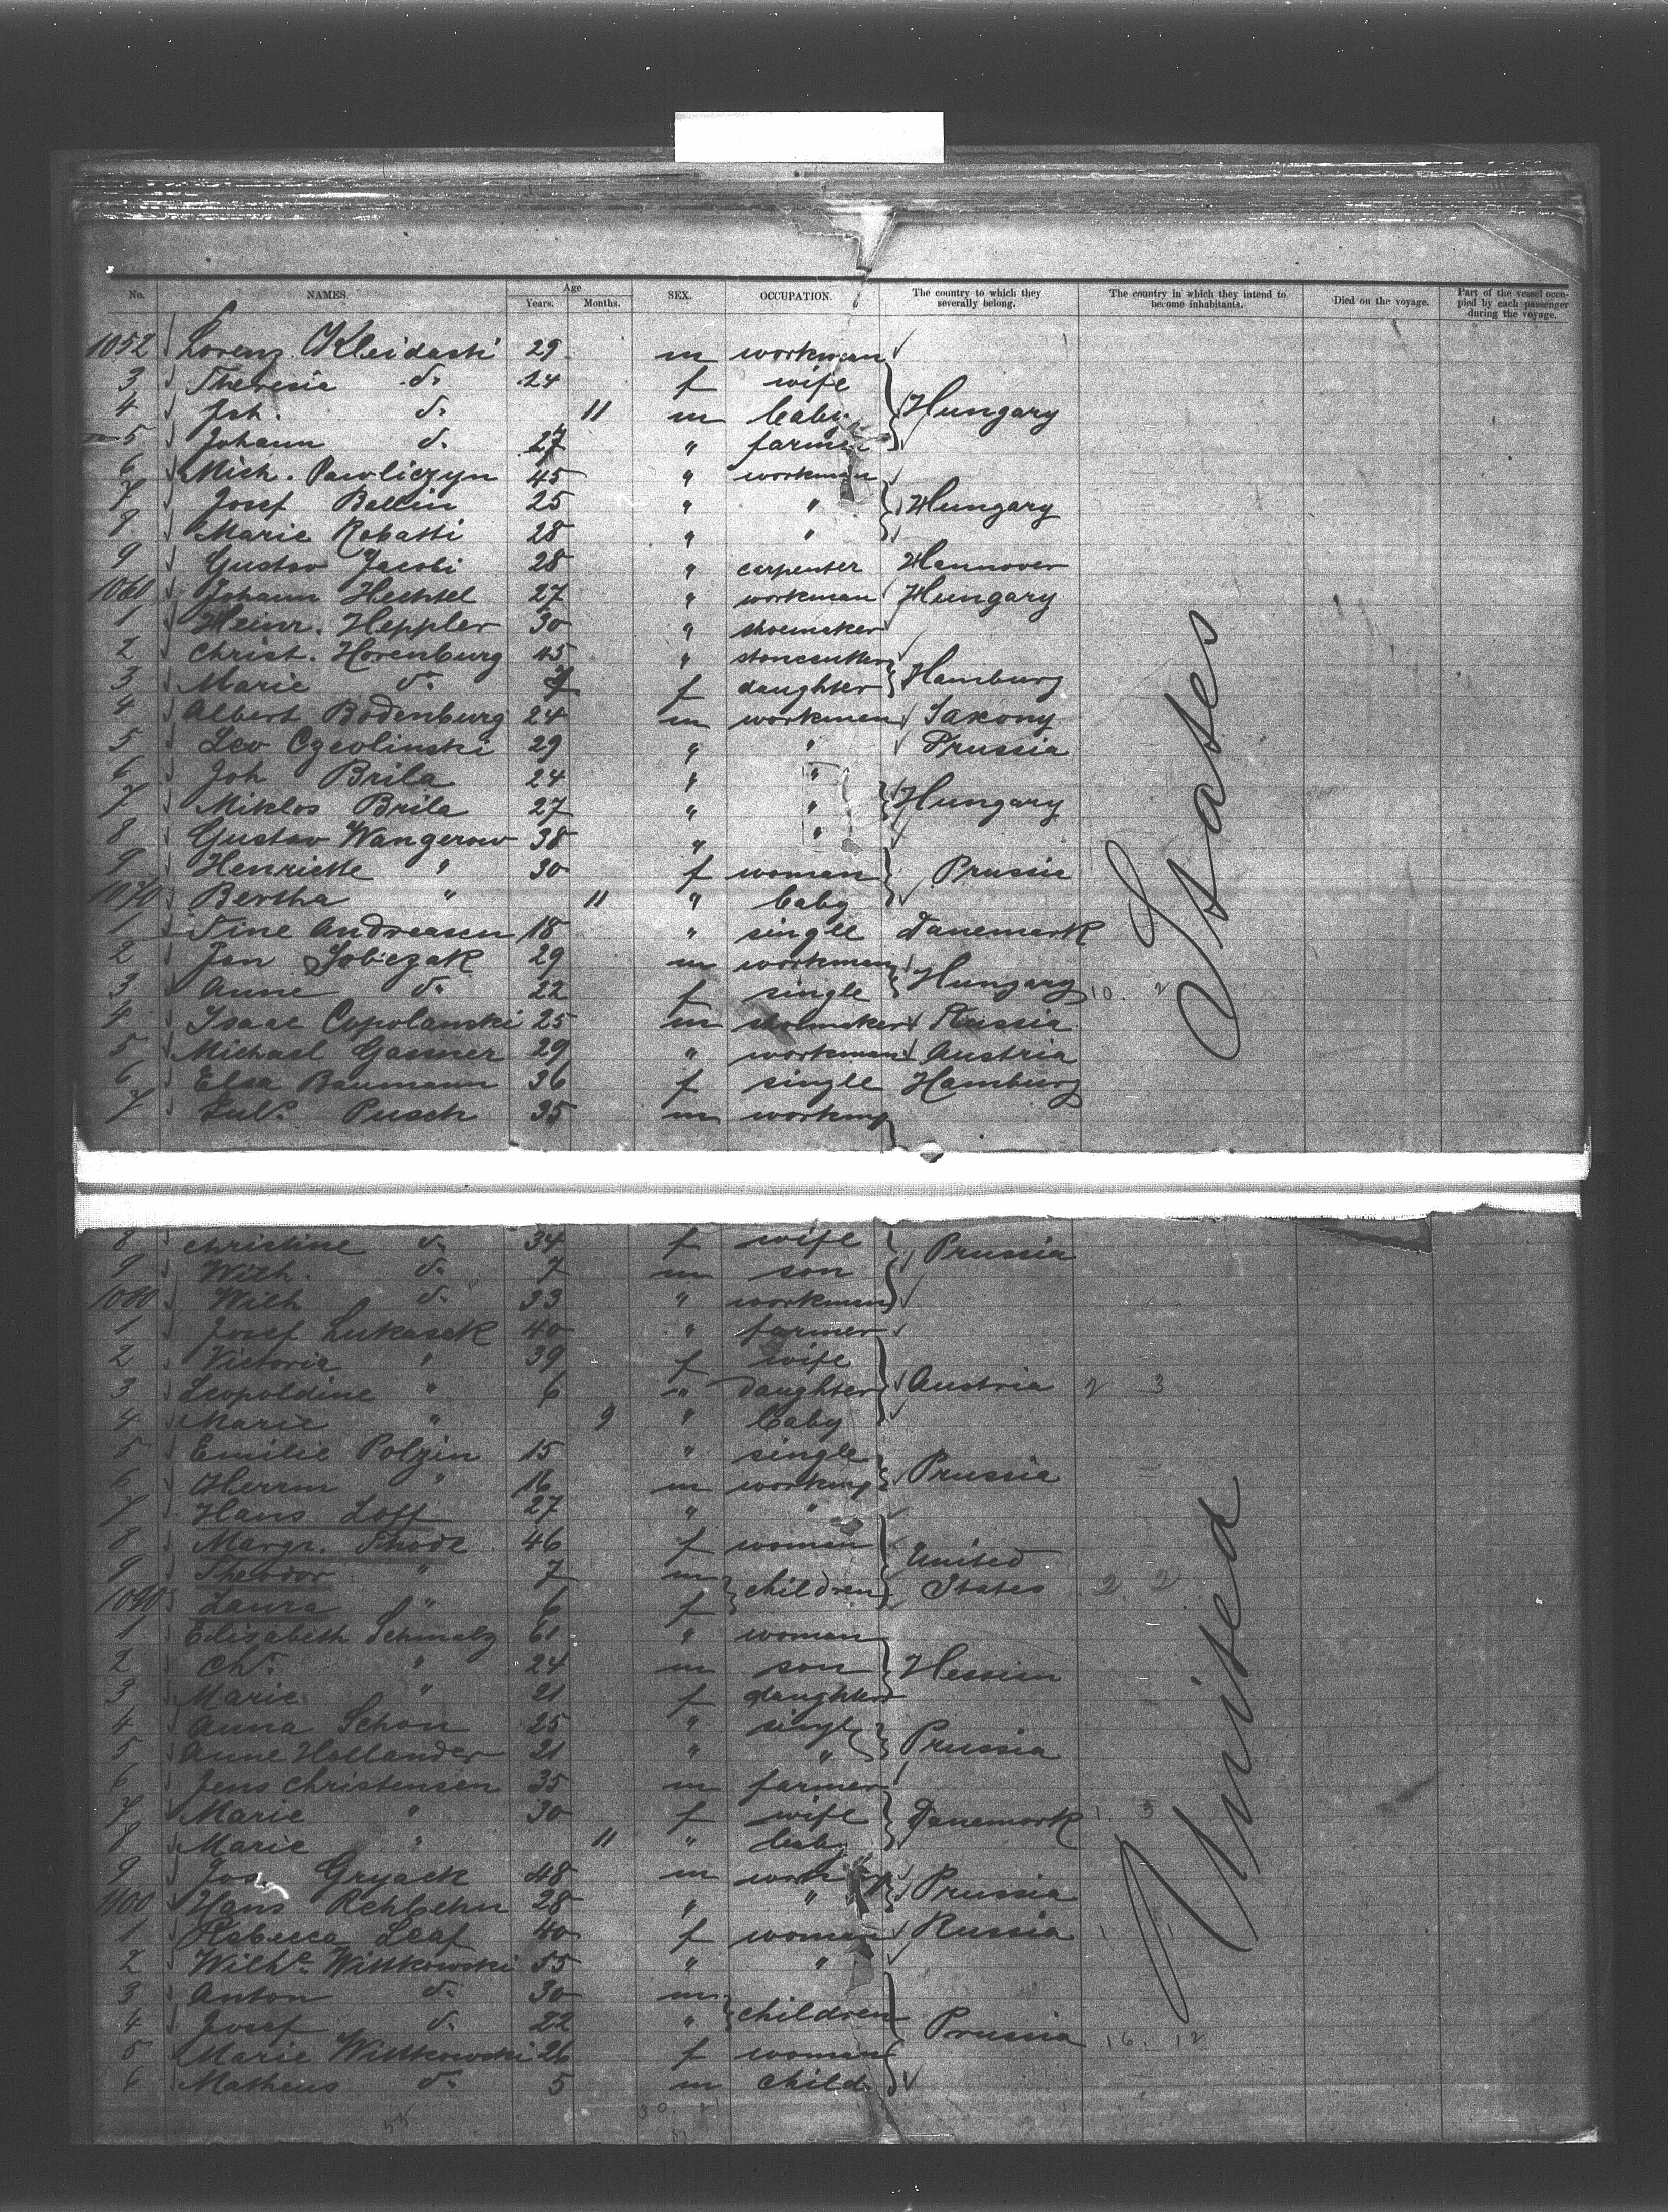 No. NAMES. Age Years. Months. SEX. OCCUPATION. The country to which they severally belong. The country in which they intend to become inhabitants. Died on the voyage. Part of the vessel occupied by each passenger during the voyage.
1052 Lorenz Kleidaski 29 m workman
3 Theresia do 24 f wife
4 Joh. do 11 m baby Hungary
5 Johann do 27 " farmer
6 Mich. Pawliczyn 45 " workman
7 Josef Bellin 25 " " Hungary
8 Marie Robatti 28 " "
9 Gustav Jacobi 28 " carpenter Hannover
1060 Johann Hechtel 27 " workman Hungary
1 Heinr. Heppler 30 " shoemaker
2 Christ. Horenburg 45 " stonecutter
3 Marie do 7 f daughter Hamburg
4 Albert Bodenburg 24 m workman Saxony
5 Leo Czeolinski 29 " " Prussia
6 Joh Brila 24 " "
7 Miklos Brila 27 " " Hungary
8 Gustav Wangerow 38 " "
9 Henriette " 30 f woman Prussia
1070 Bertha " 11 " baby
1 Tine Andreasen 18 " single Danemark
2 Jan Sobczak 29 m workman
3 Anne do 22 f single Hungary 10. 2
4 Isaac Copolanski 25 m shoemaker Russia
5 Michael Gassner 29 " workman Austria
6 Elsa Baumann 36 f single Hamburg
7 Pusch 35 m workmn
States
8 Christine do 34 f wife Prussia
9 Wilh. do 7 m son
1080 Wilh do 33 " workman
1 Josef Lukasek 40 " farmer
2 Victoria " 39 f wife
3 Leopoldine " 6 " daughter Austria 2 3
4 Marie " 9 " baby
5 Emilie Polzin 15 " single
6 Herrm " 16 m workmn Prussia
7 Hans Loff 27 " "
8 Margr. Thode 46 f women United
9 Theodor " 7 m children States 2 2
1090 Laura " 6 f
1 Elisabeth Schmalz 61 " woman
2 Chr. " 24 m son Hessien
3 Marie " 21 f daughter
4 Anna Schön 25 " singl
5 Anne Hollander 21 " " Prussia
6 Jens Christensen 35 m farmer
7 Marie " 30 f wife Danemark 1. 3
8 Marie " 11 " baby
9 Jos. Gryack 48 m Prussia
1100 Hans Rehbehn 28 " "
1 Rebecca Leaf 40 f woman Russia 1
2 Wilhe. Wittkowski 55 " "
3 Anton do 30 m children
4 Josef do 22 " Prussia 16. 12
5 Marie Wittkowski 26 f woman
6 Matheus do 5 m child
United